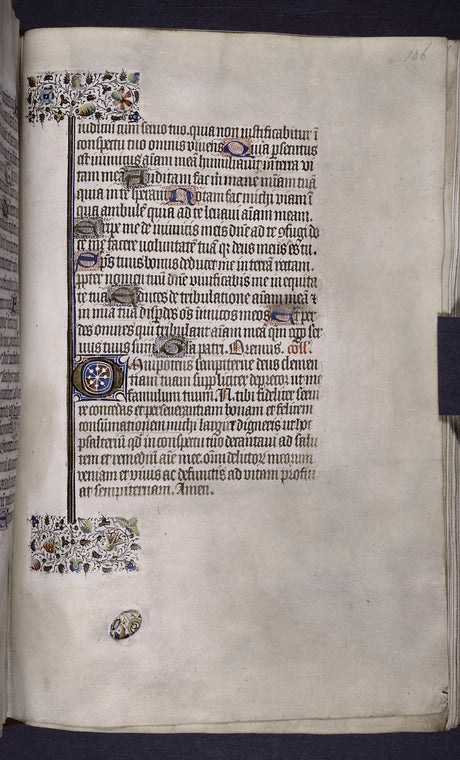 106
iudiciū cum seruo tuo. quia non iustificabitur ī
conspectu tuo omnis viuens Quia ꝑsecutus
est inimicus aīam meā humiliauit in terra vi
tam meā Auditam fac in mane mīam tuā
quia in te speraui Notam fac michi viam ī
qua ambulē quia ad te leuaui aīam meam.
Eripe me de inimicis meis dn̄e ad te ꝯfugi do
ce me facere uoluntatē tuā q̄ deus meus es tu.
Sp̄s tuus bonus deducet me in terrā rectam.
ꝓpter nomen tuū dn̄e viuificabis me in equita
te tua Educes de tribulatione aīam meā ⁊
in mīa tua disꝑdes oēs inimicos meos Et per
des omnes qui tribulant aīam meā qm̄ ego ser
uus tuus sum Gl̄a patri. Oremus. coll'.
Omnipotens sempiterne deus clemen
tiam tuam suppliciter deprecor ut me
famulum tuum .N. tibi fideliter serui
re concedas et perseuerantiam bonam et felicem
consūmationem michi largiri digneris ut hoc
psalteriū qd̄ in conspectu tuo decantaui ad salu
tem et remediū aīe mee. oīm delictor̄ meorum
veniam et viuis ac defunctis ad vitam proficiat
sempiternam. Amen.